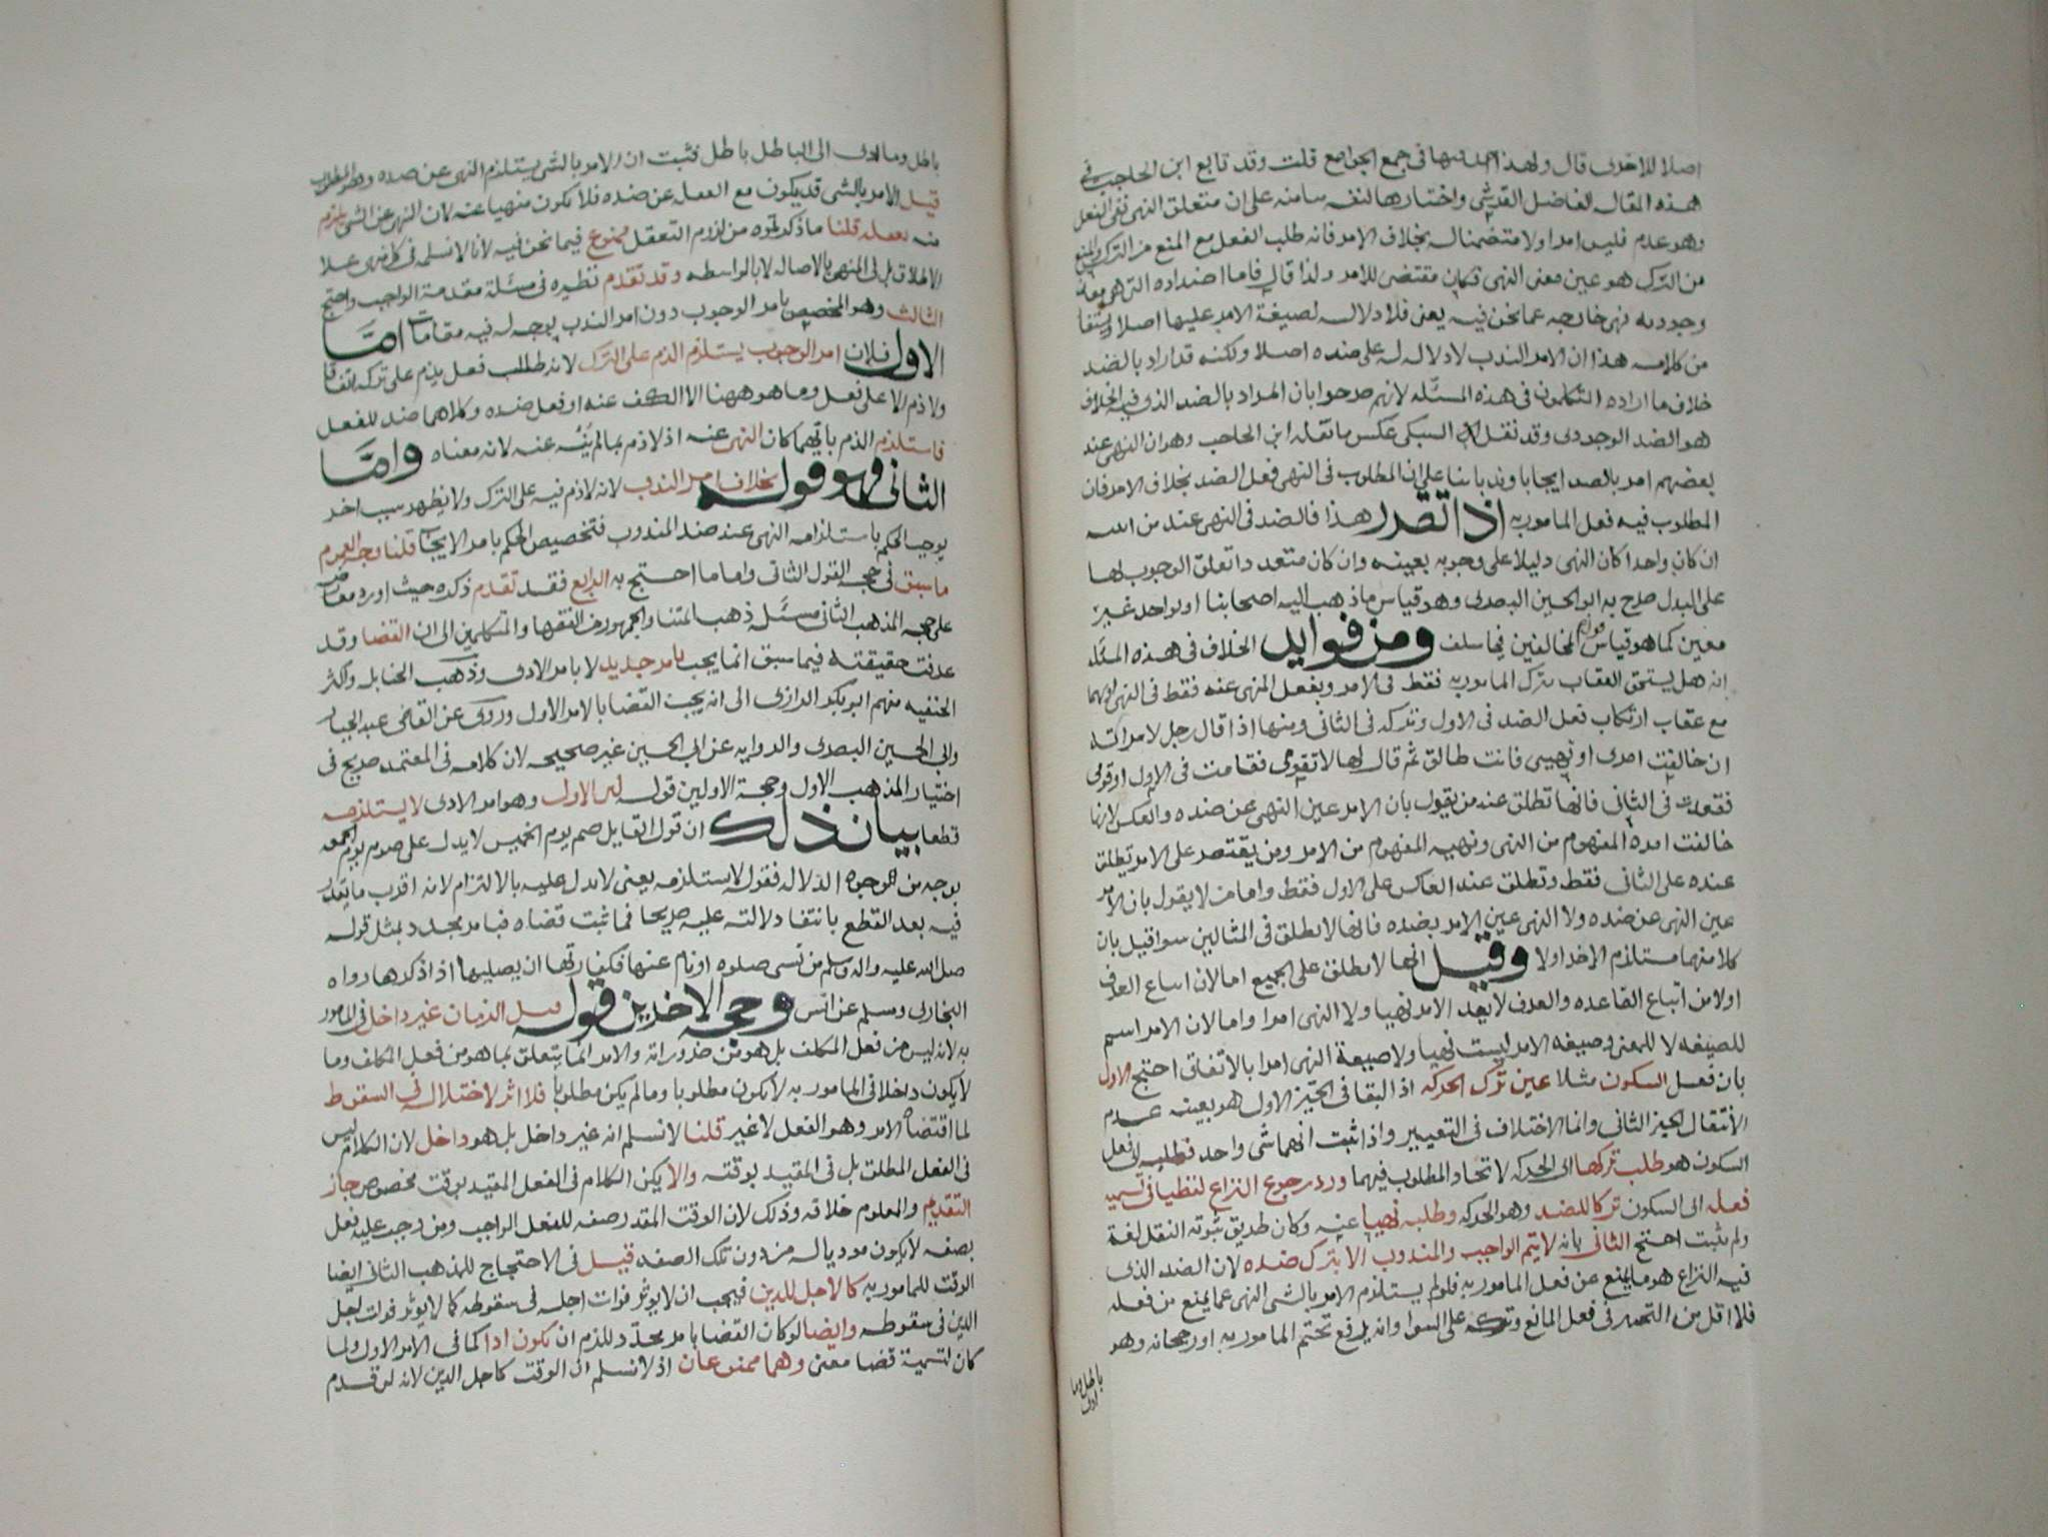 اصلا للاخرى قال ولهذا في جمع الجوامع قلت وقد تابع ابن الحاجب في
هذه المقاله الفاضل القرشي واختارها لنفسه بنا منه على ان متعلق النهي نفي الفعل
وهو عدم فليس امرا ولا متضمنا له بخلاف الامر فانه طلب الفعل مع المنع من الترك والمنع
من الترك هو عين معنى النهي فكان مقتضى للامر ولذا قال فاما اضداده التي هي معان
وجوديه فهي خارجه عما نحن فيه يعني فلا دلاله لصيغة الامر عليها اصلا ويستفا
من كلامه هذا ان الامر الندب لا دلاله له على ضده اصلا ولكنه قد اراد بالضد
خلاف ما اراده المتكلمون في هذه المسئله لانهم صرحوا بان المراد بالضد الذي فيه الخلاف
هو الضد الوجودي وقد نقل السبكي عكس ما نقله ابن الحاجب وهو ان النهي عند
بعضهم امر بالضد ايجابا وندبا بنا على ان المطلوب في النهي فعل الضد بخلاف الامر فان
المطلوب فيه فعل المامور به اذا تقرر هذا فالضد في النهي عند من
ان كان واحدا كان النهي دليلا على وجوبه بعينه وان كان متعددا تعلق الوجوب بها
على البدل صرح به ابو الحسين البصري وهو قياس ما ذهب اليه اصحابنا او بواحد غير
معين كما هو قياس قول المخالفين فيما سلف ومن فوايد الخلاف في هذه المسئله
انه هل يستحق العقاب بترك المامور به فقط في الامر وبفعل المنهي عنه فقط في النهي او بهما
مع عقاب ارتكاب فعل الضد في الاول وتركه في الثاني ومنها اذا قال رجل لامراته
ان خالفت امري او نهيي فانت طالق ثم قال لها لا تقومي فقامت في الاول او قومي
فقعدت في الثاني فانها تطلق عند من يقول بان الامر عين النهي عن ضده والعكس لانها
خالفت امره المفهوم من النهي ونهيه المفهوم من الامر ومن يقتصر على الامر تطلق
عنده على الثاني فقط وتطلق عند العاكس على الاول فقط واما من لا يقول بان الامر
عين النهي عن ضده ولا النهي عين الامر بضده فانها لا تطلق في المثالين سوا قيل بان
كلا منهما مستلزم الاخر او لا وقيل انها لا تطلق على الجميع اما لان اتباع العرف
اولا من اتباع القاعده والعرف لا يعد الامر نهيا ولا النهي امرا واما لان الامر اسم
للصيغه لا للمعنى وصيغه الامر ليست نهيا ولا صيغة النهي امرا بالاتفاق احتج الاول
بان فعل السكون مثلا عين ترك الحركه اذ البقا في الحيز الاول هو بعينه عدم
الانتقال الى الحيز الثاني وانما الاختلاف في التعبير واذا ثبت انهما شي واحد فطلبه اي فعل
السكون هو طلب تركها اي الحركه لاتحاد المطلوب فيهما ورد برجوع النزاع لفظيا في تسميه
فعله اي السكون تركا للضد وهو الحركه وطلبه نهيا عنه وكان طريق ثبوته النقل لغة
ولم يثبت احتج الثاني بانه لا يتم الواجب والمندوب الا بترك ضده لان الضد الذي
فيه النزاع هو ما يمنع عن فعل المامور به فلو لم يستلزم الامر بالشي النهي عما يمنع من فعله
فلا اقل من التخيير في فعل المانع وتركه على السوا وانه يرفع تحتم المامور به او رجحانه وهو
باطل وما
ادى
باطل وما ادى الى الباطل باطل فثبت ان الامر بالشي يستلزم النهي عن ضده وهو المطلوب
قيل الامر بالشي قد يكون مع الغفله عن ضده فلا يكون منهيا عنه لان النهي عن الشي يلزم
منه تعقله قلنا ما ذكرتموه من لزوم التعقل ممنوع فيما نحن فيه لانا لا نسلمه في كل نهي على
الاطلاق بل في المنهي بالاصاله لا بالواسطه وقد تقدم نظيره في مسئلة مقدمة الواجب واحتج
الثالث وهو المخصص بامر الوجوب دون امر الندب بوجه له فيه مقامات اما
الاول فلان امر الوجوب يستلزم الذم على الترك لانه طلب فعل يذم على تركه اتفاقا
ولا ذم الا على فعل وما هو ههنا الا الكف عنه او فعل ضده وكلاهما ضد للفعل
فاستلزم الذم بايهما كان النهي عنه اذ لا ذم بما لم ينه عنه لانه معناه واما
الثاني فهو قوله بخلاف امر الندب لانه لا ذم فيه على الترك ولا يظهر سبب اخر
يوجب الحكم باستلزامه النهي عند ضد المندوب فتخصيص الحكم بامر الايجاب قلنا وجه العموم
ما سبق في حجه القول الثاني واما ما احتج به الرابع فقد تقدم ذكره حيث اورد معارض
على حجه المذهب الثاني مسئله ذهب ائمتنا والجمهور من الفقها والمتكلمين الى ان القضا وقد
عرفت حقيقته فيما سبق انما يجب بامر جديد لا بامر الادى وذهب الحنابله واكثر
الحنفيه منهم ابو بكر الرازي الى انه يجب القضا بالامر الاول وروى عن القاضي عبد الجبار
وابي الحسين البصري والروايه عن ابي الحسين غير صحيحه لان كلامه في المعتمد صريح في
اختيار المذهب الاول وحجة الاولين قوله الاول وهو امر الادى لا يستلزمه
قطعا بيان ذلك ان قول القايل صم يوم الخميس لا يدل على صوم يوم الجمعه
بوجه من وجوه الدلاله فقوله لا يستلزمه يعني لا يدل عليه بالالتزام لانه اقرب ما يقدر
فيه بعد القطع بانتفا دلالته عليه صريحا فما ثبت قضاه فبامر مجدد بمثل قوله
صلى الله عليه واله وسلم من نسى صلوه او نام عنها فكفارتها ان يصليها اذا ذكرها رواه
البخاري ومسلم عن انس وحجه الاخرين قوله قيل الزمان غير داخل في المامور
به لانه ليس من فعل المكلف بل هو من ضروراته والامر انما يتعلق بما هو من فعل المكلف وما
لا يكون داخلا في المامور به لا يكون مطلوبا وما لم يكن مطلوبا فلا اثر لاختلاله في السقوط
لما اقتضاه الامر وهو الفعل لا غير قلنا لا نسلم انه غير داخل بل هو داخل لان الكلام ليس
في الفعل المطلق بل في المقيد بوقته والا يكن الكلام في الفعل المقيد بوقت مخصوص جاز
التقديم والمعلوم خلافه وذلك لان الوقت المقدر صفه للفعل الواجب ومن وجب عليه فعل
بصفه لا يكون موديا له من دون تلك الصفه قيل في الاحتجاج للمذهب الثاني ايضا
الوقت للمامور به كالاجل للدين فيجب ان لا يوثر فوات اجله في سقوطه كما لا يوثر فوات اجل
الدين في سقوطه وايضا لو كان القضا بامر مجدد للزم ان يكون ادا كما في الامر الاول ولما
كان لتسمية قضا معنى وهما ممنوعان اذ لا نسلم ان الوقت كاجل الدين لانه لو قدم